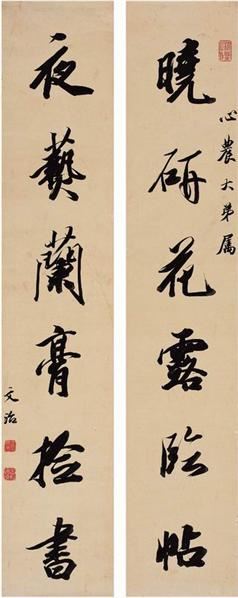 曉研花露臨帖
心農大弟属
夜爇蘭膏撿書
文治